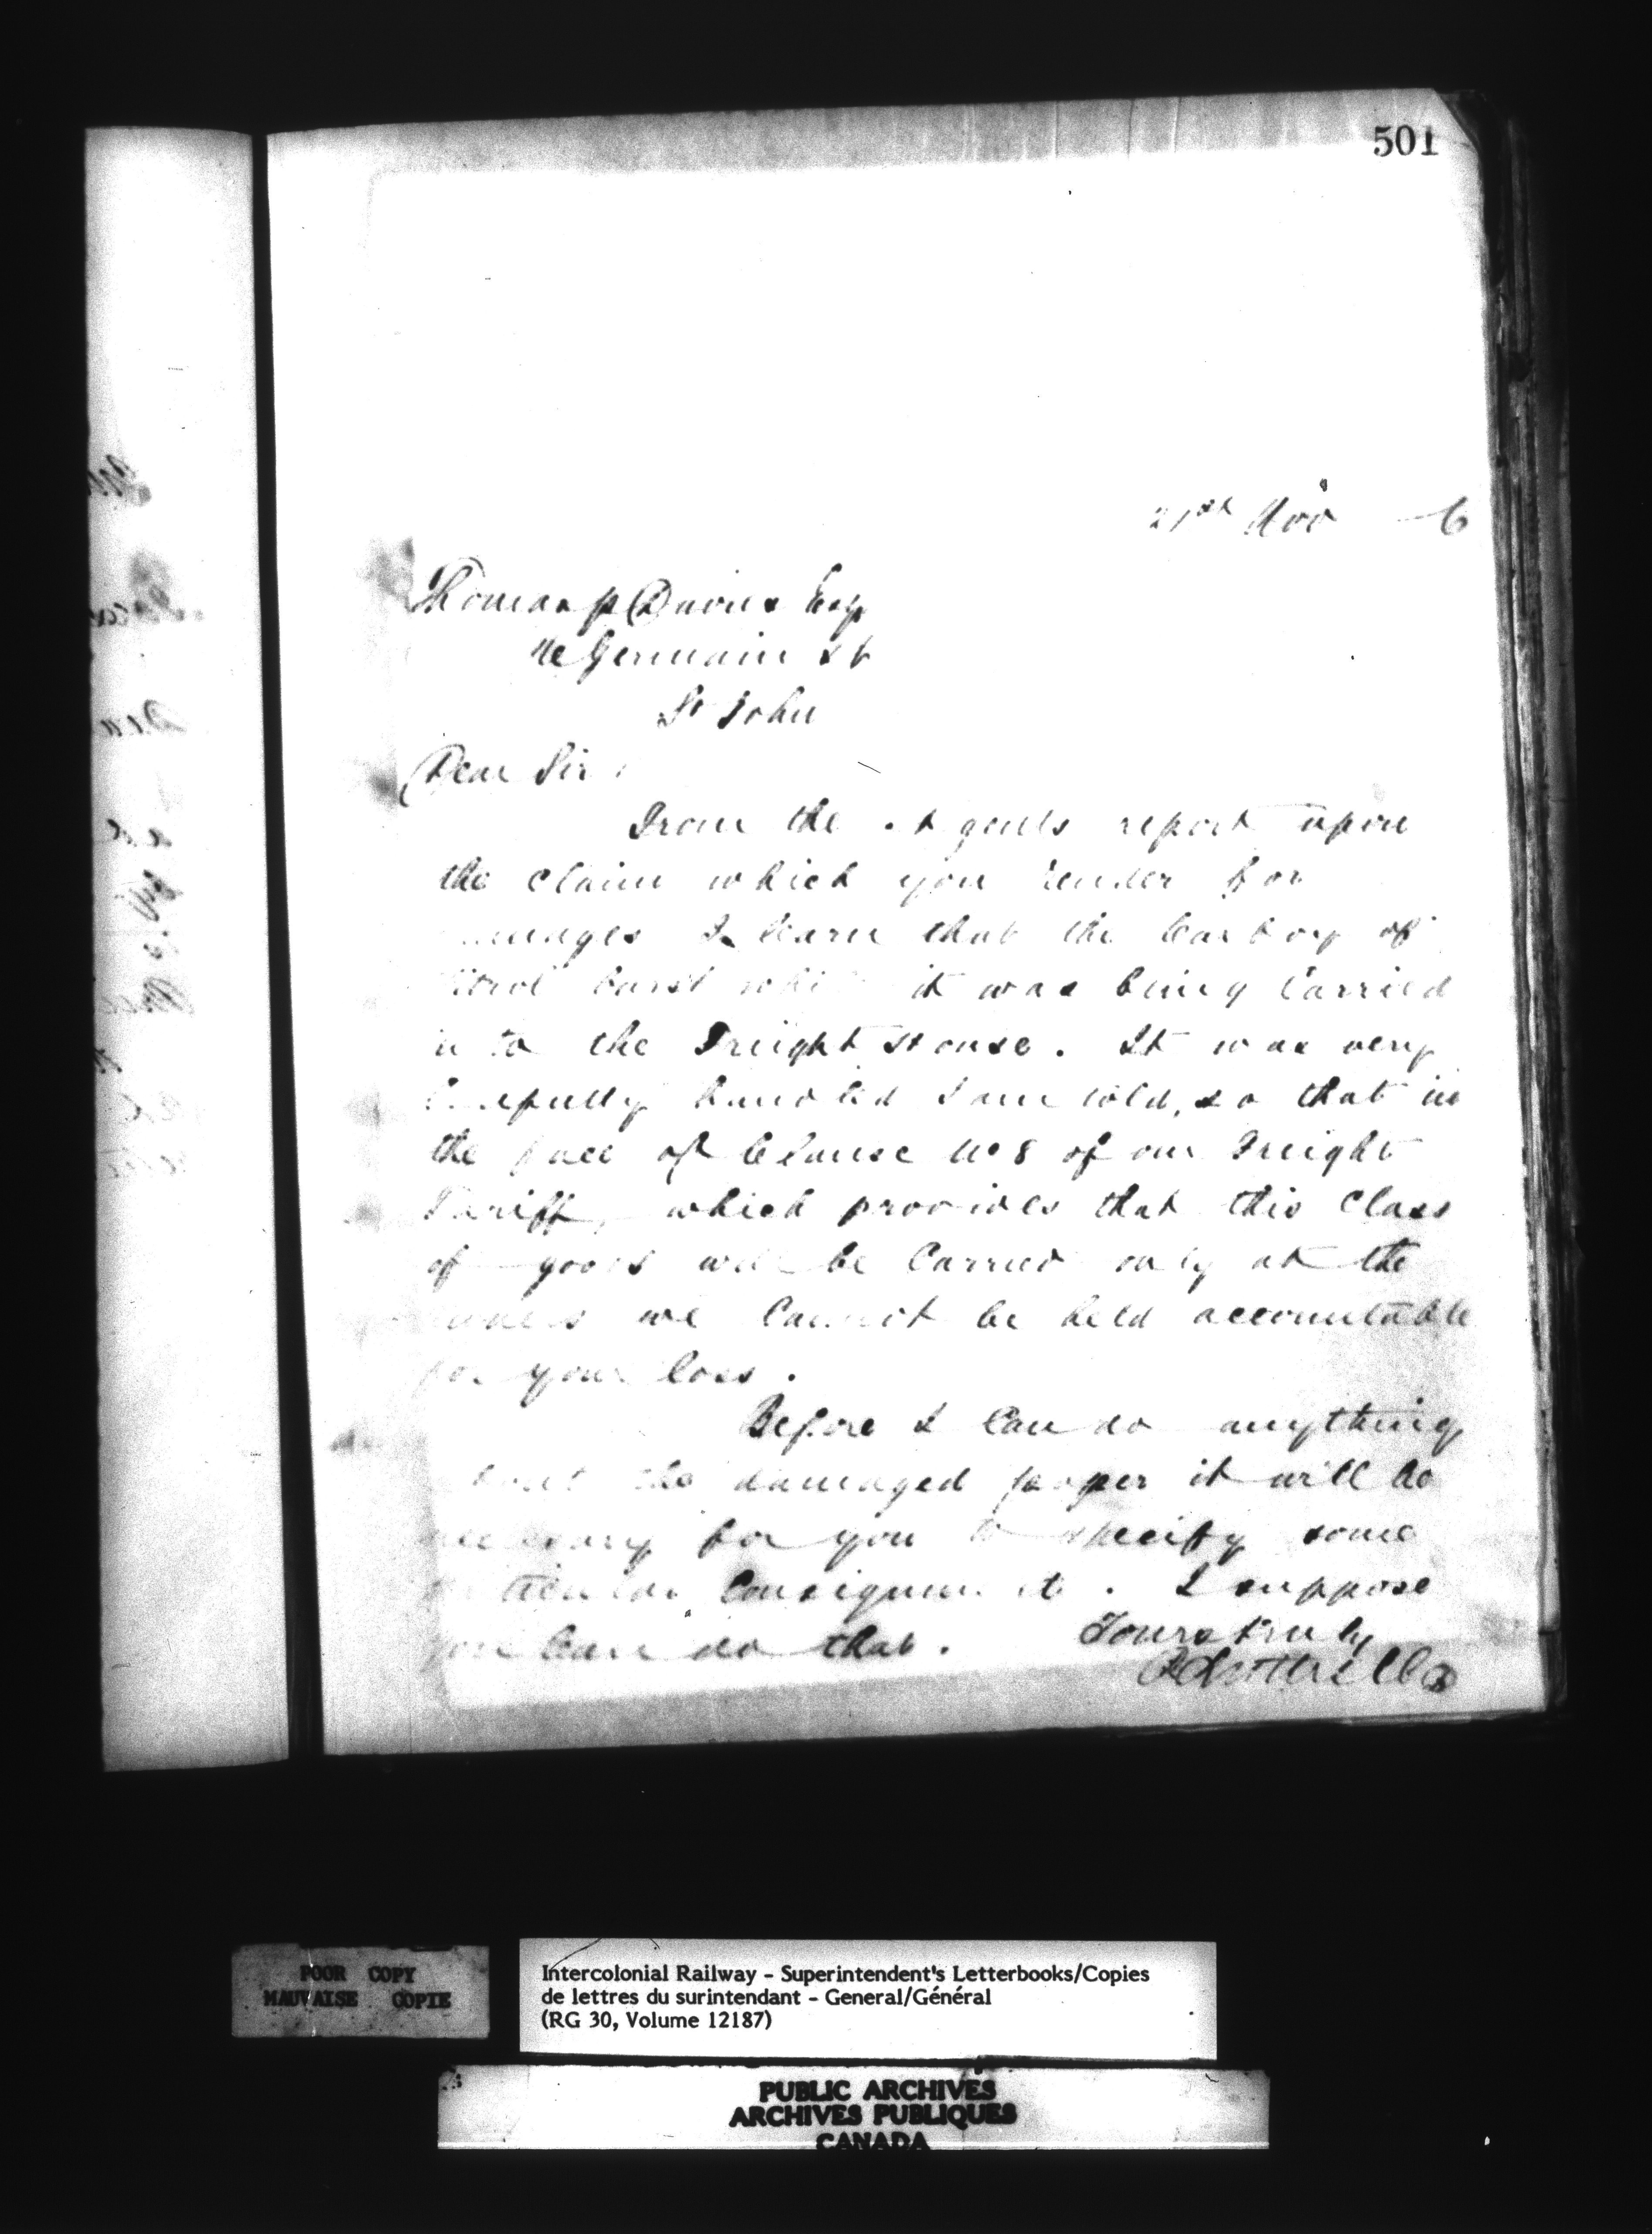 501
21st Nov 6
Thomas P Davies Esq
Germain St
St John
Dear Sir
From the Agents report upon
the claim which you render for
I learn that the Carboy of
burst it was being Carried
the Freight House. It was very
handled I am told, so that in
the face of Clause No 8 of our Freight
Tariff, which provides that this Class
of goods will be Carried only at the
we Cannot be held accountable
for your loss.
Before I Can do anything
the damaged paper it will be
necessary for you to specify some
Consignment. I suppose
you Can do that. Yours truly
POOR COPY
MAUVAISE COPIE
Intercolonial Railway - Superintendent's Letterbooks/Copies
de lettres du surintendant - General/Général
(RG 30, Volume 12187)
PUBLIC ARCHIVES
ARCHIVES PUBLIQUES
CANADA